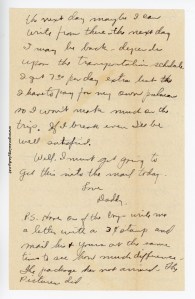 the next day maybe I can
write from there - the next day
I may be back - depends
upon the transportation schedule
I get 7.00 per day extra but the
I have to pay for my own
so I won't make much on the
trip. If I break even I'll be
well satisfied.
Well, I must get going to
get this into the mail today.
Love
Daddy.
P.S. Have one of the boys write me
a letter with a 3¢ stamp and
mail his & yours at the same
time to see how much difference.
The package has not arrived. The
Pictures did